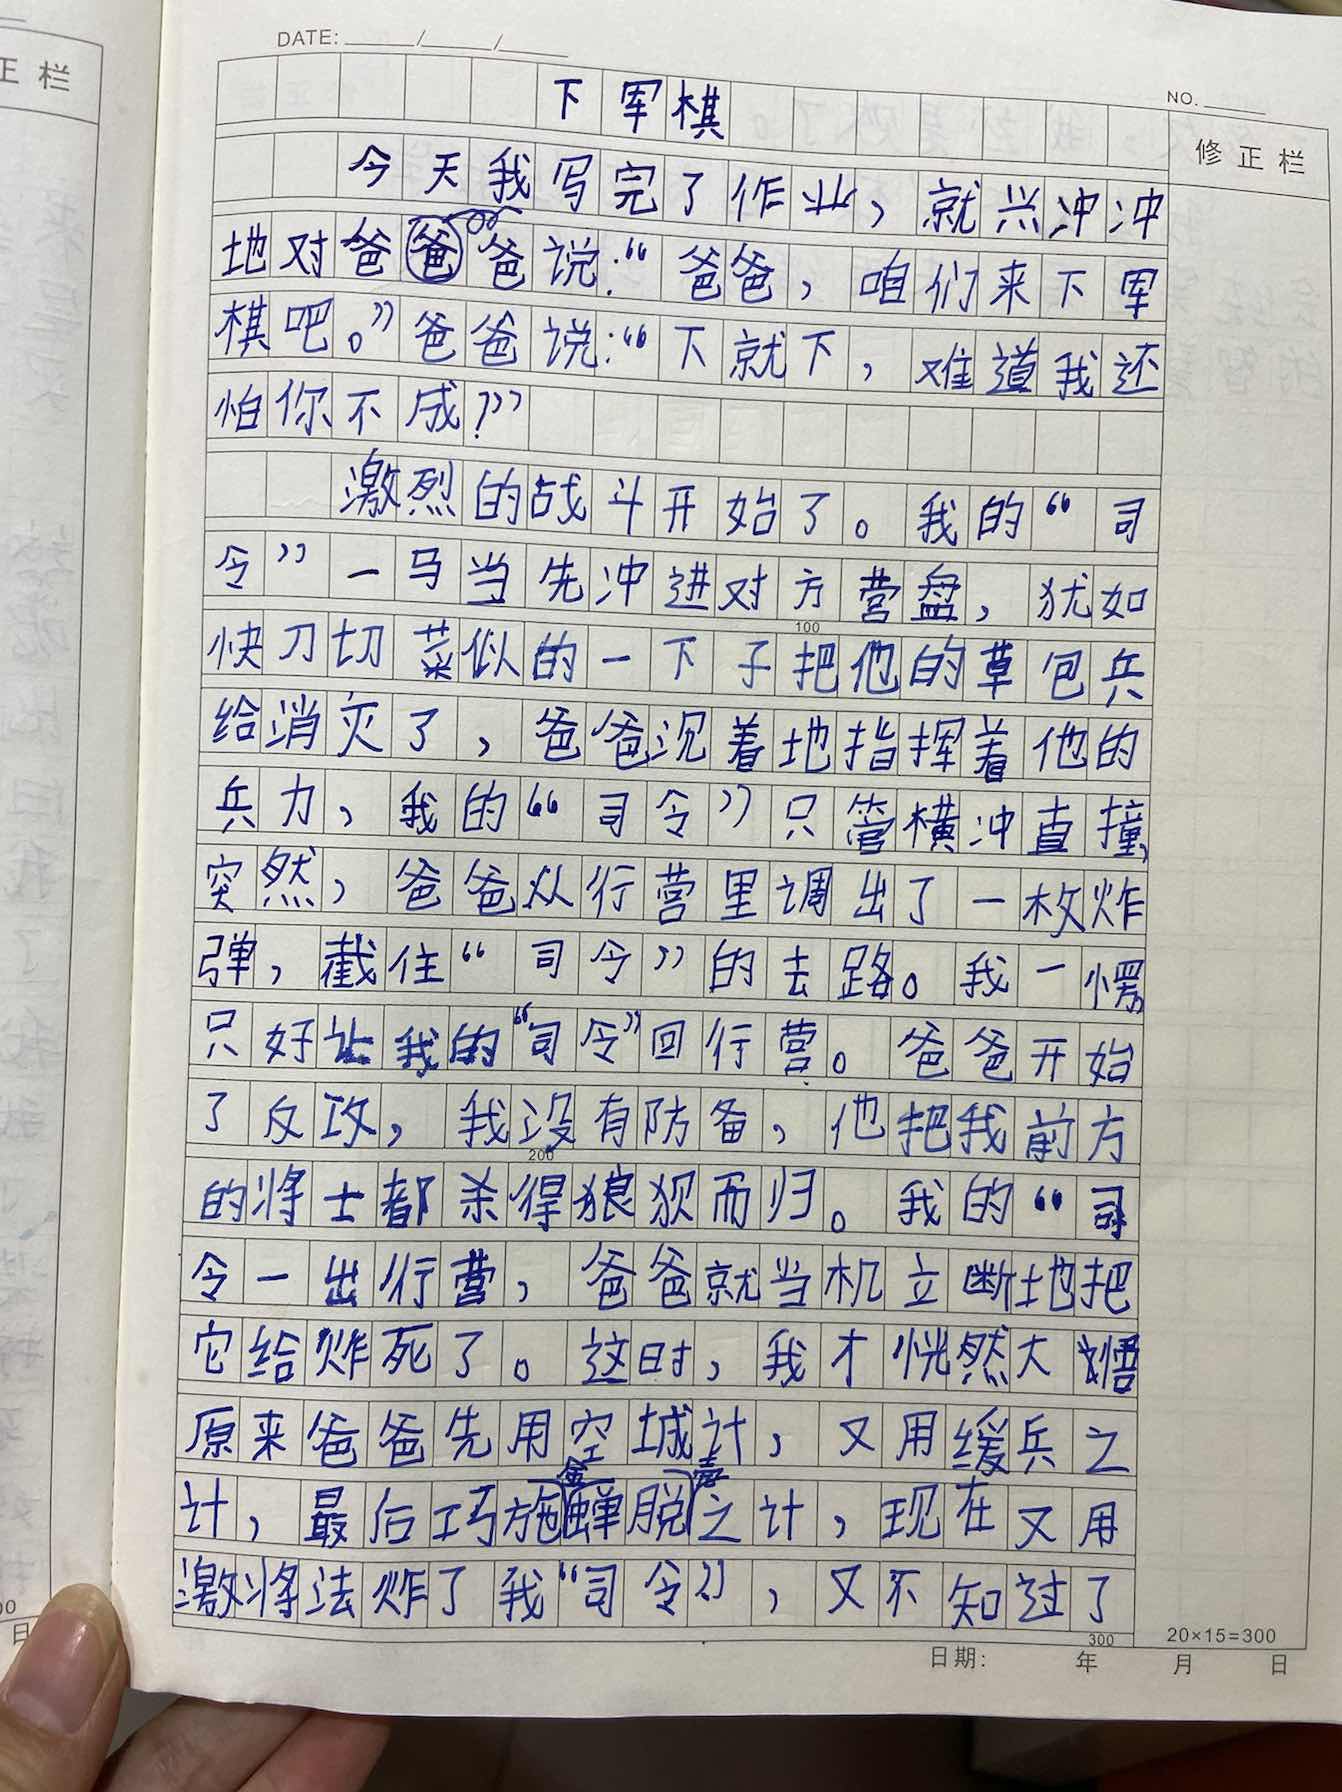 DATE: ____/____/____
NO. ____
正栏
修正栏
下军棋
今天我写完了作业，就兴冲冲
地对爸爸说：“爸爸，咱们来下军
棋吧。”爸爸说：“下就下，难道我还
怕你不成？”
激烈的战斗开始了。我的“司
令”一马当先冲进对方营盘，犹如
快刀切菜似的一下子把他的草包兵
100
给消灭了，爸爸沉着地指挥着他的
兵力，我的“司令”只管横冲直撞，
突然，爸爸从行营里调出了一枚炸
弹，截住“司令”的去路。我一愣，
只好让我的“司令”回行营。爸爸开始
了反攻，我没有防备，他把我前方
200
的将士都杀得狼狈而归。我的“司
令一出行营，爸爸就当机立断地把
它给炸死了。这时，我才恍然大悟
原来爸爸先用空城计，又用缓兵之
计，最后巧施金蝉脱壳之计，现在又用
激将法炸了我“司令”，又不知过了
300
20×15=300
日期： 年 月 日